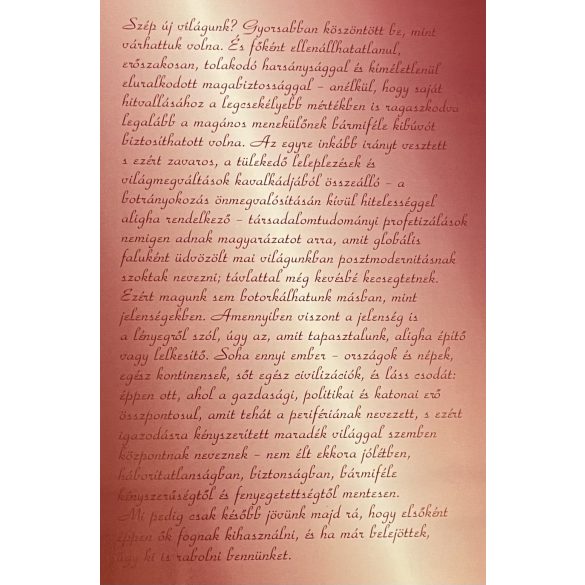 Szép új világunk? Gyorsabban köszöntött be, mint
várhattuk volna. És főként ellenállhatatlanul,
erőszakosan, tolakodó harsánysággal és kíméletlenül
eluralkodott magabiztossággal – anélkül, hogy saját
hitvallásához a legcsekélyebb mértékben is ragaszkodva
legalább a magános menekülőnek bármiféle kibúvót
biztosíthatott volna. Az egyre inkább irányt vesztett
s ezért zavaros, a tülekedő leleplezések és
világmegváltások kavalkádjából összeálló – a
botrányokozás önmegvalósításán kívül hitelességgel
aligha rendelkező – társadalomtudományi profetizálások
nemigen adnak magyarázatot arra, amit globális
faluként üdvözölt mai világunkban posztmodernitásnak
szoktak nevezni; távlattal még kevésbé kecsegtetnek.
Ezért magunk sem botorkálhatunk másban, mint
jelenségekben. Amennyiben viszont a jelenség is
a lényegről szól, úgy az, amit tapasztalunk, aligha építő
vagy lelkesítő. Soha ennyi ember – országok és népek,
egész kontinensek, sőt egész civilizációk, és láss csodát:
éppen ott, ahol a gazdasági, politikai és katonai erő
összpontosul, amit tehát a perifériának nevezett, s ezért
igazodásra kényszerített maradék világgal szemben
központnak neveznek – nem élt ekkora jólétben,
háborítatlanságban, biztonságban, bármiféle
kényszerűségtől és fenyegetettségtől mentesen.
Mi pedig csak később jövünk majd rá, hogy elsőként
éppen ők fognak kihasználni, és ha már belejöttek,
úgy ki is rabolni bennünket.